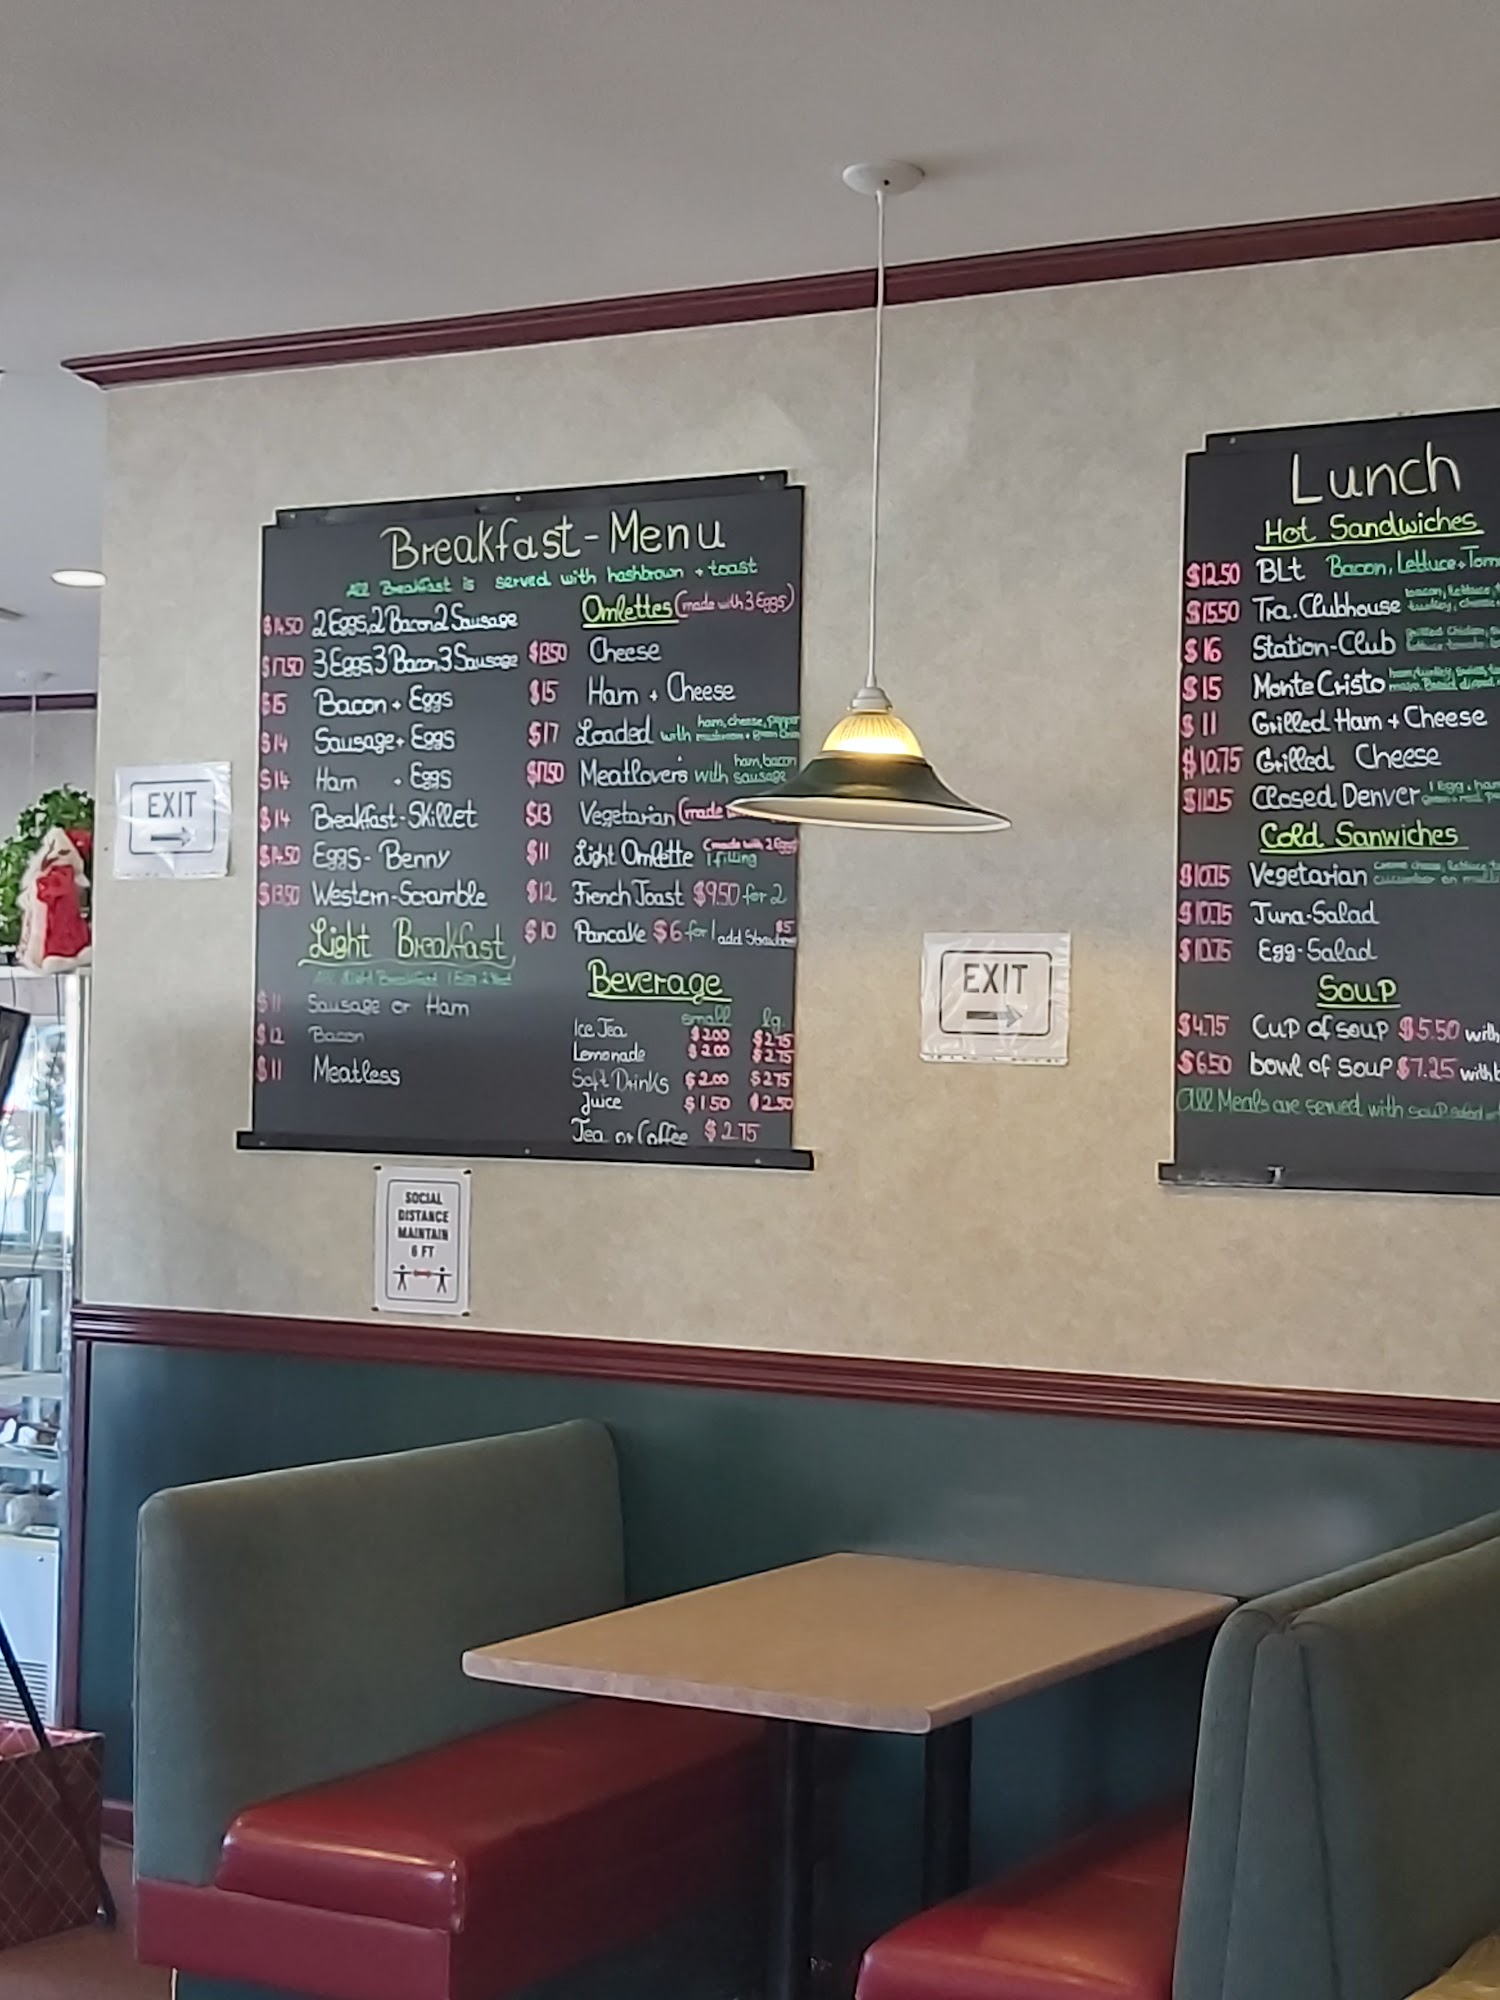 Breakfast-Menu
All Breakfast is served with hashbrown + toast
$14.50 2 Eggs, 2 Bacon 2 Sausage
$17.50 3 Eggs 3 Bacon 3 Sausage
$15 Bacon + Eggs
$14 Sausage + Eggs
$14 Ham + Eggs
$14 Breakfast-Skillet
$14.50 Eggs-Benny
$13.50 Western-Scramble
Light Breakfast
All Light Breakfast 1 Egg
$11 Sausage or Ham
$12 Bacon
$11 Meatless
Omlettes (made with 3 Eggs)
$13.50 Cheese
$15 Ham + Cheese
$17 Loaded with ham, cheese, pepper
mushroom + Green Onion
$17.50 Meatlovers with ham, bacon
sausage
$13 Vegetarian (made
$11 Light Omlette (made with 2 Eggs)
1 filling
$12 French Toast $9.50 for 2
$10 Pancake $6 for 1 add $5
Beverage
small lg.
Ice Tea $2.00 $2.75
Lemonade $2.00 $2.75
Soft Drinks $2.00 $2.75
Juice $1.50 $2.50
Tea or Coffee $2.75
EXIT
SOCIAL
DISTANCE
MAINTAIN
6 FT
EXIT
Lunch
Hot Sandwiches
$12.50 BLt Bacon, Lettuce + Tom
$15.50 Tra. Clubhouse bacon, lettuce,
turkey, cheese
$16 Station-Club grilled chicken,
lettuce tomato
$15 Monte Cristo ham, turkey, swiss
mayo. Bread dipped
$11 Grilled Ham + Cheese
$10.75 Grilled Cheese
$11.25 Closed Denver 1 Egg, ham
Cold Sanwiches
$10.75 Vegetarian cheese, lettuce
cucumber on
$10.75 Tuna-Salad
$10.75 Egg-Salad
Soup
$4.75 Cup of soup $5.50 with
$6.50 bowl of soup $7.25 with
All Meals are served with soup, salad